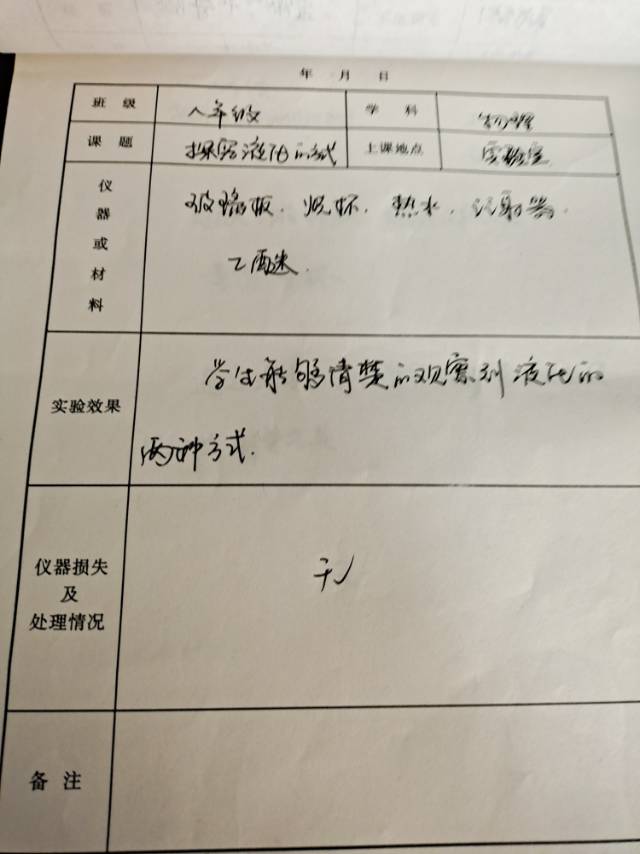 年 月 日
班 级 八年级 学 科 物理
课 题 探究液化的方式 上课地点 实验室
仪器或材料 玻璃板. 烧杯. 热水. 注射器.
乙醚.
实验效果 学生能够清楚的观察到液化的
两种方式.
仪器损失
及
处理情况 无
备 注